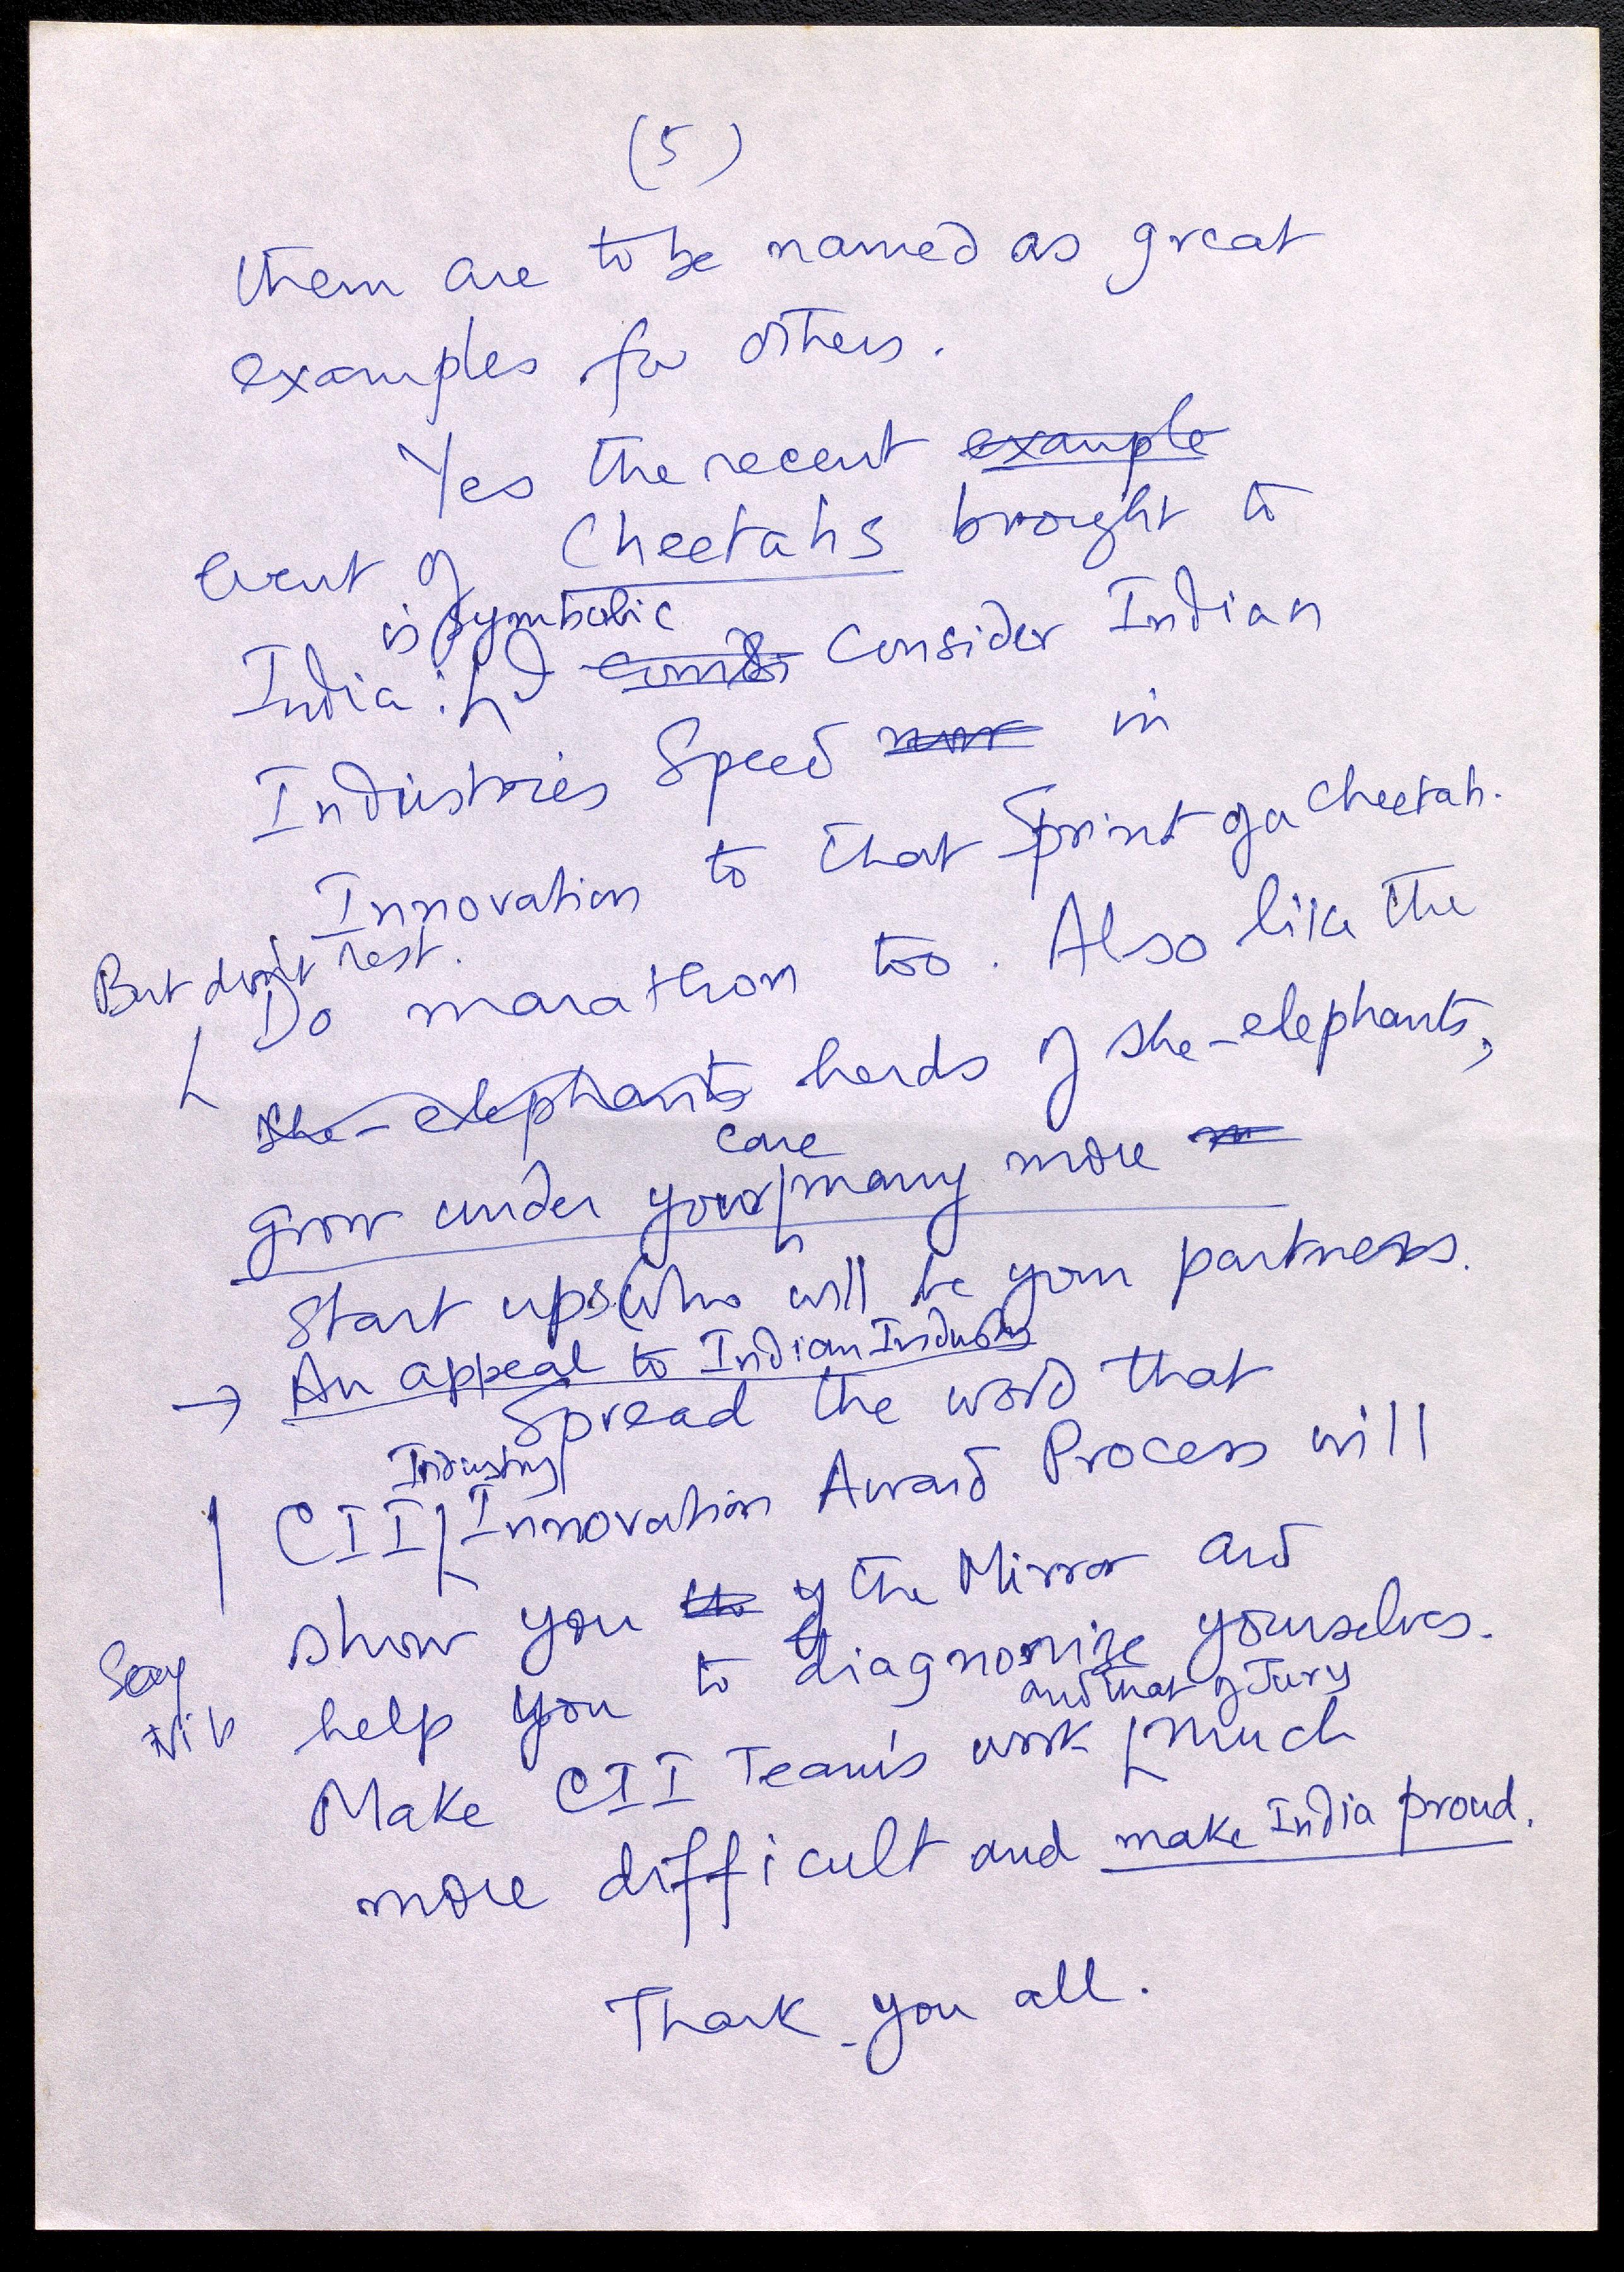 (5)
them are to be named as great
examples for others.
Yes the recent example
event of Cheetahs brought to
is symbolic
India. I consider Indian
Industries Speed in
Innovation to that Sprint of a Cheetah.
But don't rest.
Do marathon too. Also like the
she-elephants herds of she-elephants,
care
grow under your many more
start ups (who will be your partners.
→ An appeal to Indian Industry
Spread the word that
Industry
CII Innovation Award Process will
show you the the Mirror and
help you to diagnonize yourselves.
and that of Jury
Make CII Team's work much
more difficult and make India proud.
Thank you all.